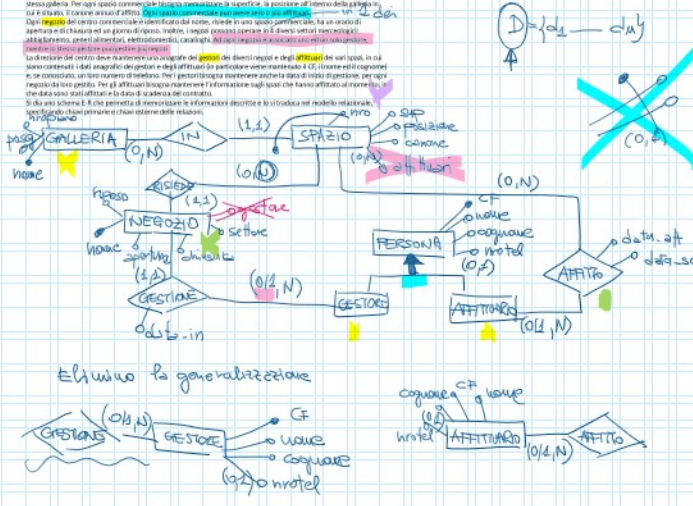 stessa galleria. Per ogni spazio commerciale bisogna memorizzare la superficie, la posizione all'interno della galleria in
cui è situato, il canone annuo d'affitto. Ogni spazio commerciale può avere zero o più affittuari.
1 dei
Ogni negozio del centro commerciale è identificato dal nome, risiede in uno spazio commerciale, ha un orario di
apertura e di chiusura ed un giorno di riposo. Inoltre, i negozi possono operare in diversi settori merceologici:
abbigliamento, generi alimentari, elettrodomestici, casalinghi. Ad ogni negozio è associato uno ed un solo gestore,
mentre lo stesso gestore può gestire più negozi.
La direzione del centro deve mantenere una anagrafe dei gestori dei diversi negozi e degli affittuari dei vari spazi, in cui
siano contenuti i dati anagrafici dei gestori e degli affittuari (in particolare viene mantenuto il CF, il nome ed il cognome)
e, se conosciuto, un loro numero di telefono. Per i gestori bisogna mantenere anche la data di inizio di gestione, per ogni
negozio da loro gestito. Per gli affittuari bisogna mantenere l'informazione sugli spazi che hanno affittato al momento, in
che data sono stati affittati e la data di scadenza del contratto.
Si dia uno schema E-R che permetta di memorizzare le informazioni descritte e lo si traduca nel modello relazionale,
specificando chiavi primarie e chiavi esterne delle relazioni.
D = {d1 — dn}
GALLERIA
nome
(0,N)
IN
(1,1)
SPAZIO
nro
sup
posizione
canone
(0,N)
affittuari
(0,N)
RISIEDE
(1,1)
riposo
NEGOZIO
gestore
settore
nome
apertura
chiusura
(1,1)
GESTIONE
data-in
(0/1,N)
GESTORE
PERSONA
CF
nome
cognome
nrotel
(0,1)
AFFITTUARIO
(0/1,N)
AFFITTO
data-aff
data-sc
(0,N)
Elimino la generalizzazione
GESTIONE
(0/1,N)
GESTORE
CF
nome
cognome
(0,1)
nrotel
cognome
CF
nome
(0,1)
nrotel
AFFITTUARIO
(0/1,N)
AFFITTO